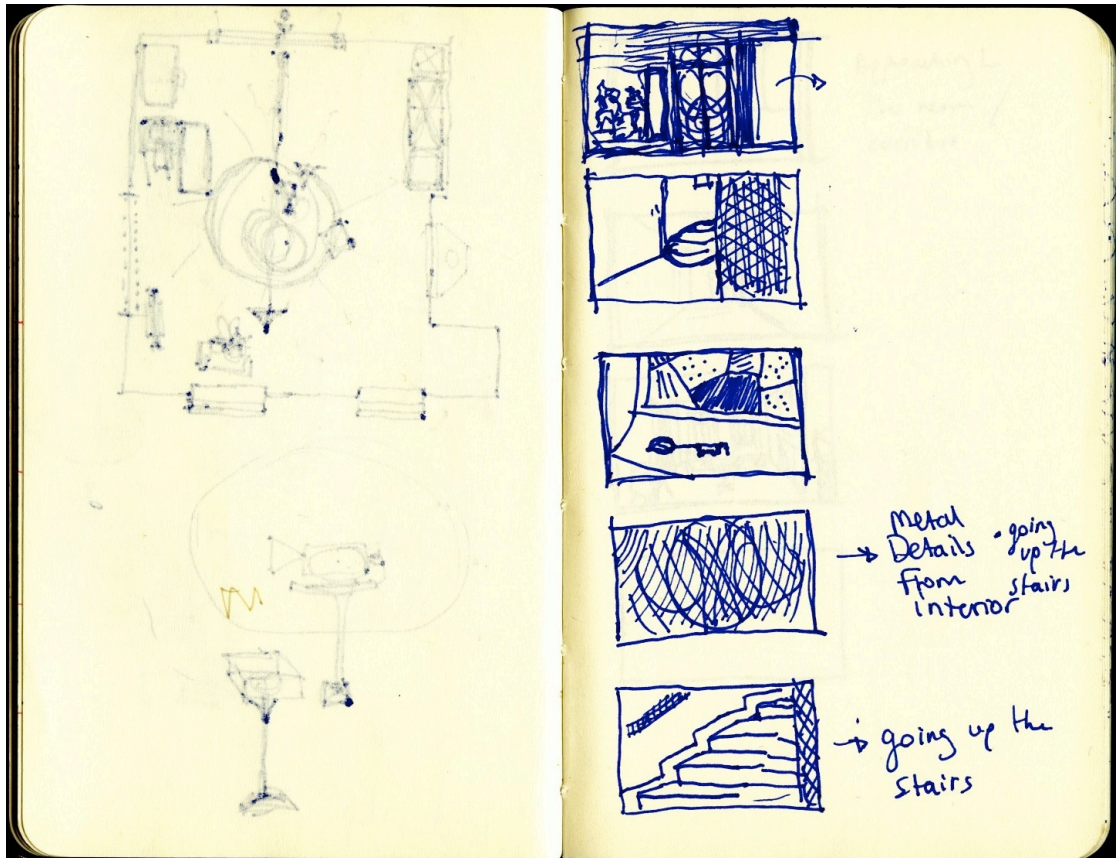 Metal
Details
From
interior
• going
up the
stairs
going up the
stairs